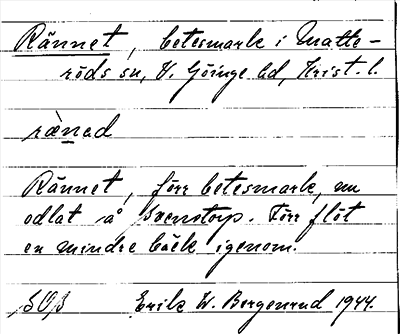 Rännet, betesmark i Matte-
röds sn, V. Göinge hd, Krist. l.
rænəd
Rännet, förr betesmark, nu
odlat å Svenstorp. Förr flöt
en mindre bäck igenom.
Erik W. Bergenrud 1944.